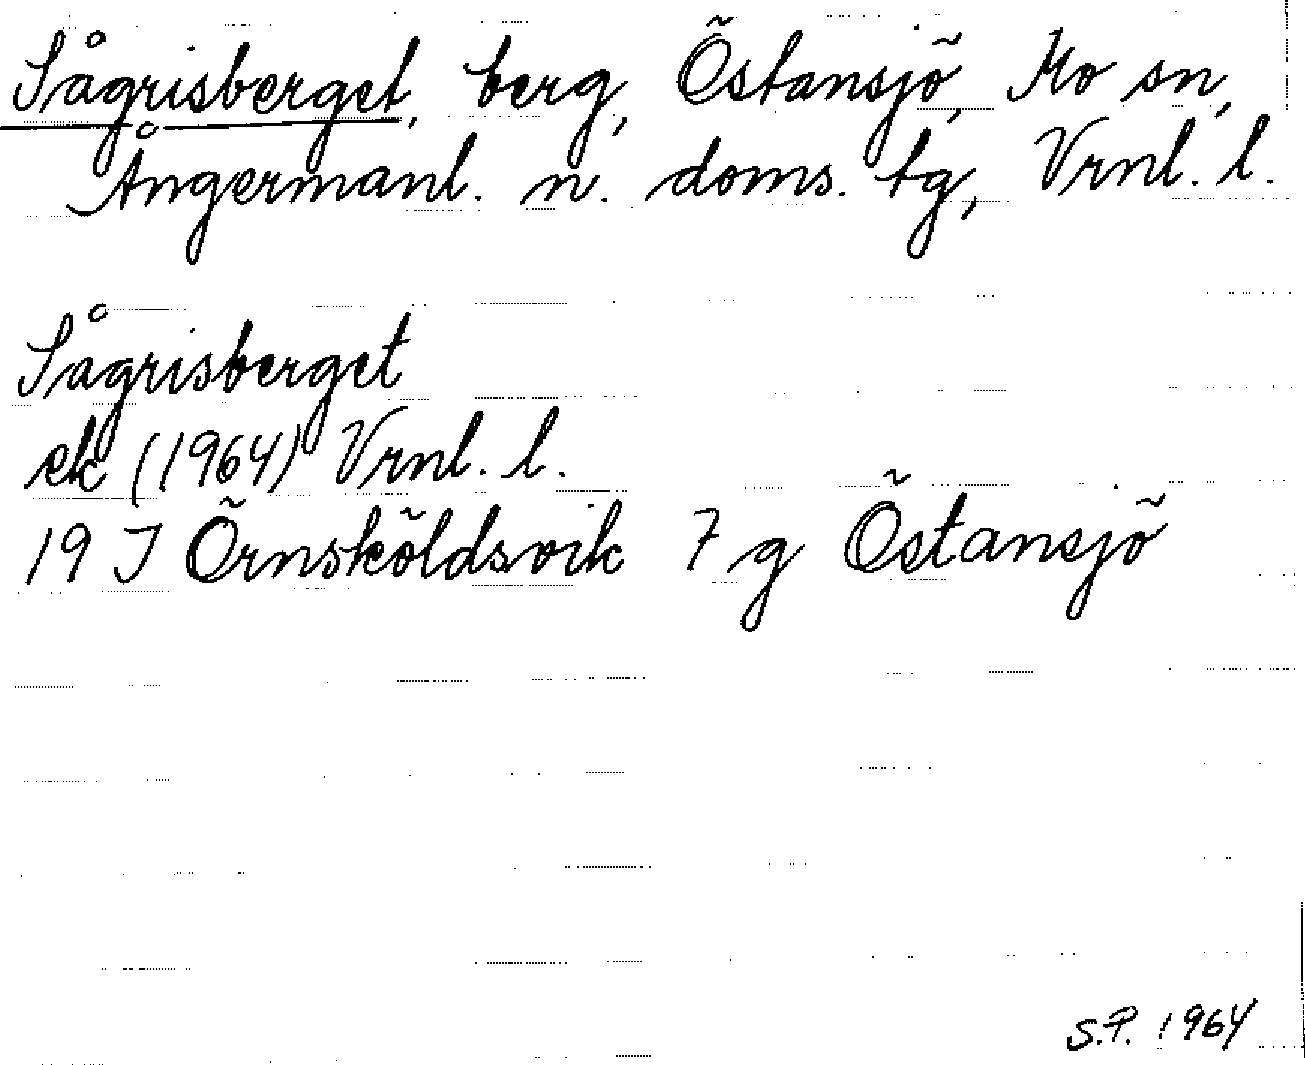 Sågrisberget, berg, Östansjö, Mo sn,
Ångermanl. n. doms. tg, Vrnl. l.
Sågrisberget
ek (1964) Vrnl. l.
19 J Örnsköldsvik 7 g Östansjö
S.P. 1964